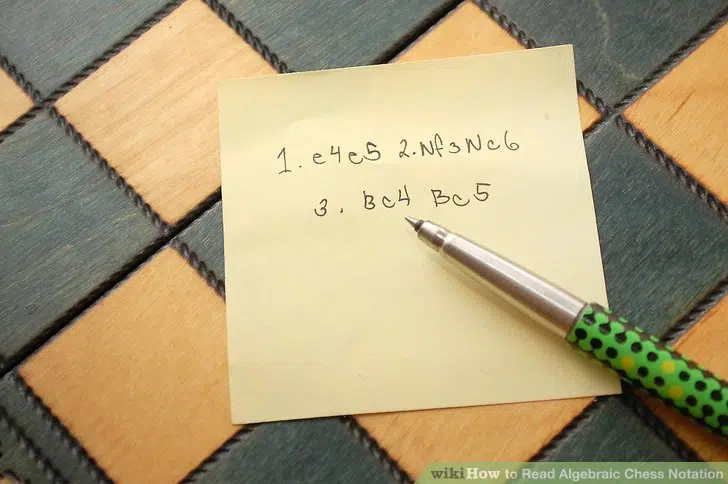 1. e4e5 2.Nf3Nc6
3. Bc4 Bc5
wikiHow to Read Algebraic Chess Notation